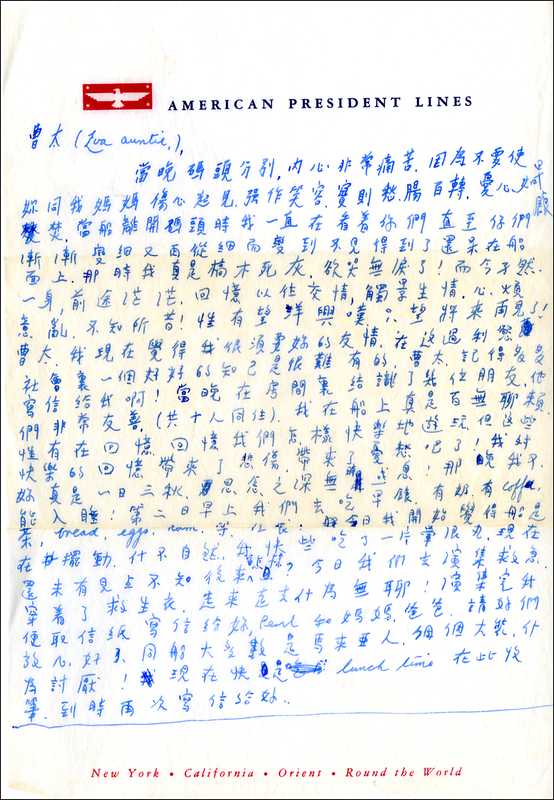 AMERICAN PRESIDENT LINES
曹太 (Eva auntie,),
當晚碼頭分別,內心非常痛苦.因為不要使
妳同我媽媽傷心起見,強作笑容,實則愁腸百轉,憂心如
焚.當船離開碼頭時我一直在看着你們直至你們
漸漸變細又再從細而變到不見得到了還呆在船
面上.那時我真是槁木死灰,欲哭無淚了!而今孑然
一身,前途茫茫.回憶以往交情,觸景生情.心煩
意亂,不知所昔!惟有望洋興嘆,只望將來再見了!
曹太.我現在覺得我很須要妳的友情,在這過利
社會裏一個好好的知己是很難有的,曹太,記得多多
寫信給我啊!當晚在房間裏結識了幾位朋友,他
們非常友善,(共十人同住).我在船上真是百無聊賴
惟有在回憶,回憶我們怎樣快樂地遊玩但這些
快樂的回憶帶來了悲傷,帶來了憂愁吧了!我對
妳真是一日三秋,思念之深無息!那晚我不
能入睡!第二日早上我們去吃早餐,有奶有coffee,
茶,bread, eggs, 等.日我開始覺得船是
在擺動,什不自然,我快些吃了一片暈浪丸,現在
還未有見点不知後來今日我們去演集救急.
穿着了救生衣.走來走去什為無聊!演集完我
便取信紙寫信給妳,Pearl 和媽媽,爸爸.請妳們
放心.同船大多數是馬來亜人.個個大裝,什
為討厭!現在快是 lunch time 在此收
筆.到時再次寫信給妳..
New York • California • Orient • Round the World